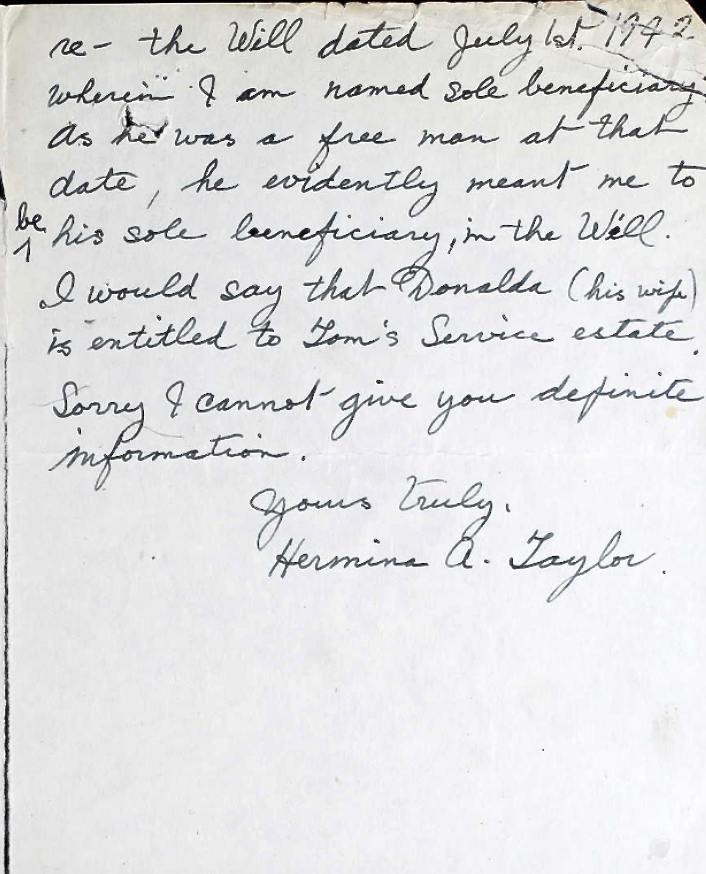 re- the Will dated July 1st. 1942
wherein I am named sole beneficiary
As he was a free man at that
date, he evidently meant me to
be
his sole beneficiary, in the Will.
I would say that Donalda (his wife)
is entitled to Tom's Service estate.
Sorry I cannot give you definite
information.
Yours truly.
Hermina A. Taylor.